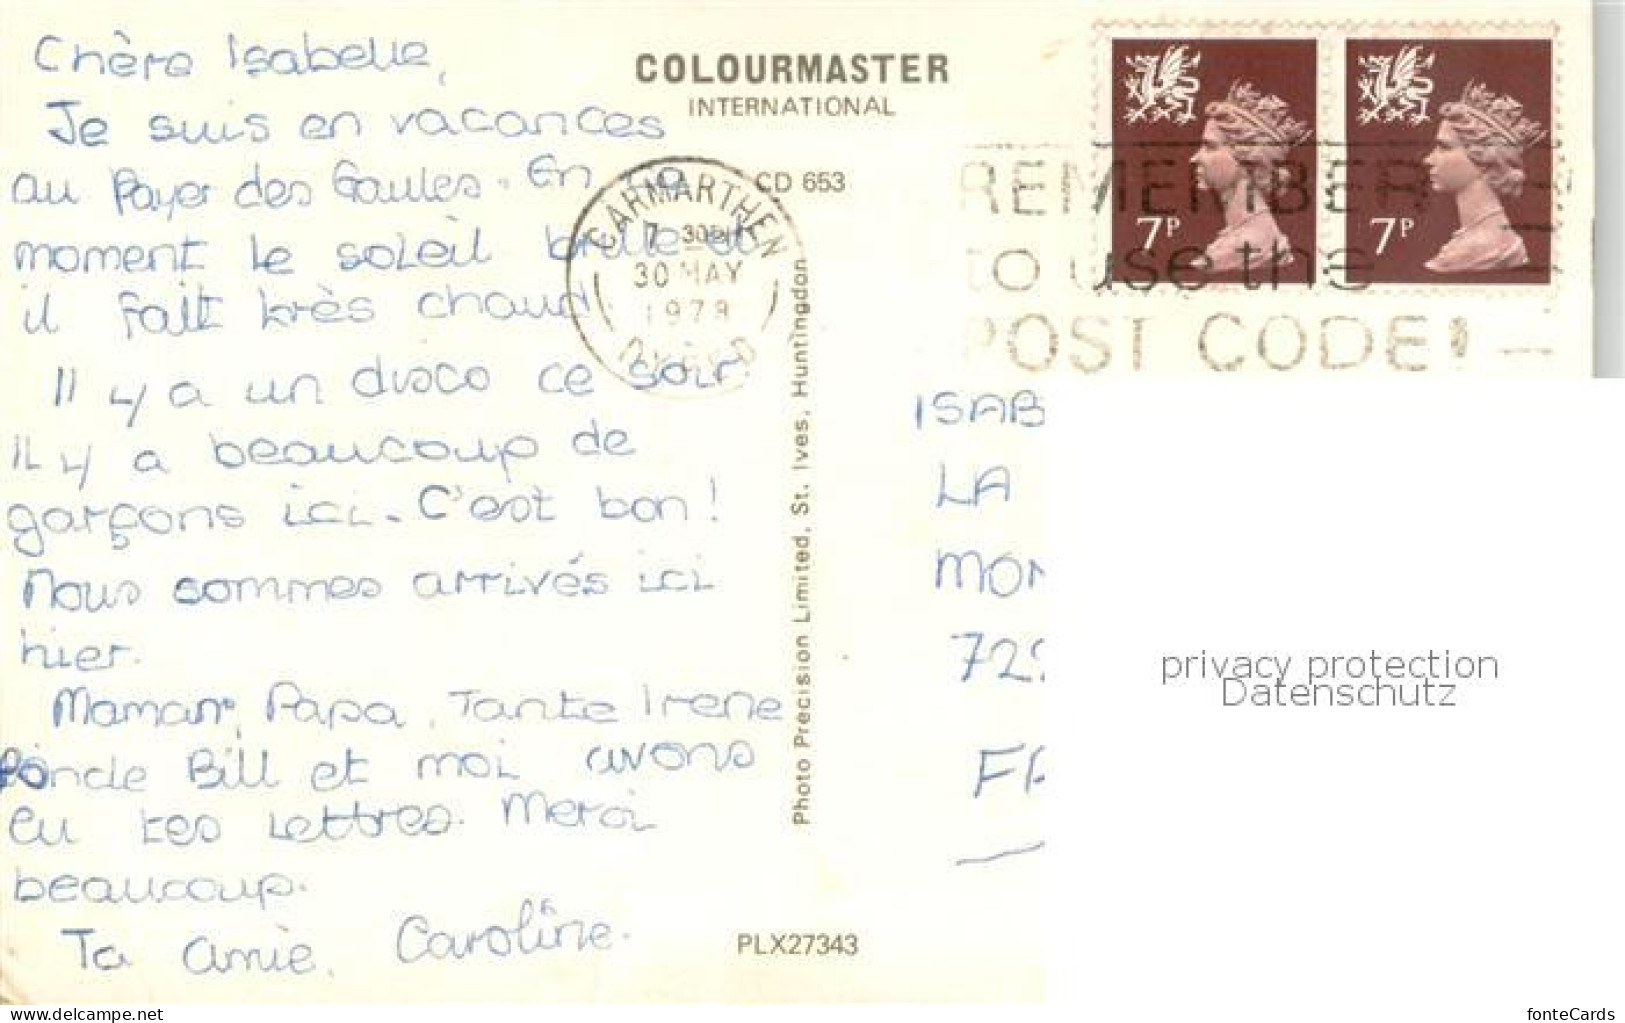 Chère Isabelle,
Je suis en vacances
au Payer des Gaules. En ce
moment le soleil brille et
il fait très chaud
Il y a un disco ce soir
Il y a beaucoup de
garçons ici. C'est bon!
Nous sommes arrivés ici
hier.
Maman, Papa, Tante Irene
oncle Bill et moi avons
eu tes lettres. Merci
beaucoup.
Ta amie, Caroline.
COLOURMASTER
INTERNATIONAL
CD 653
CARMARTHEN
30 MAY
DYFED
REMEMBER
to use the
POST CODE
7P
7P
Photo Precision Limited, St. Ives, Huntingdon
PLX27343
ISAB
LA
MON
72
privacy protection
Datenschutz
www.delcampe.net
fonteCards